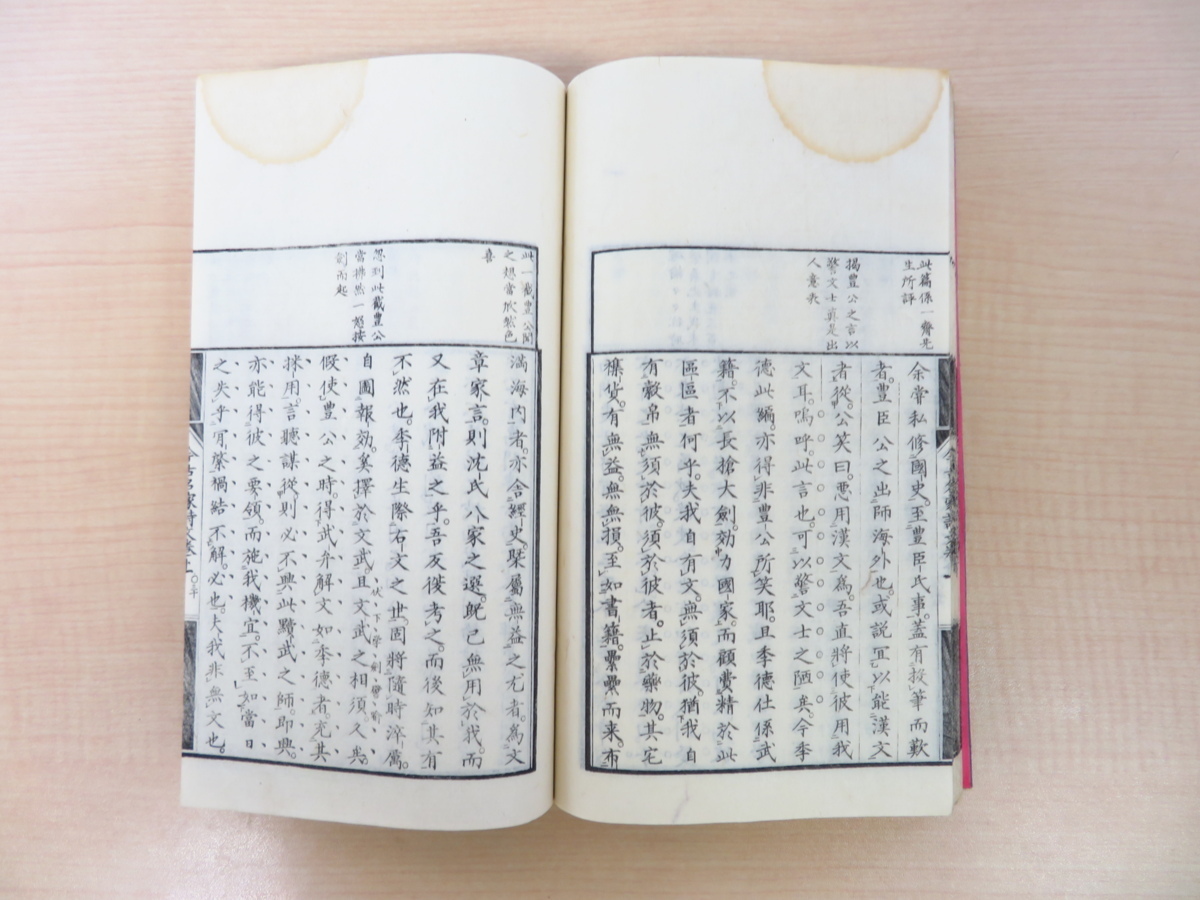 此篇係一齋先
生所評
揭豊公之言以
警文士眞是出
人意表
余嘗私修國史。至豊臣氏事。蓋有投筆而歎
者。豊臣公之出師海外也。或説冝以能漢文
者從。公笑曰。悪用漢文爲。吾直將使彼用我
文耳。嗚呼。此言也。可以警文士之陋矣。今李
德此編。亦得非豊公所笑耶。且李德仕係武
籍。不以長槍大劍。効力國家。而顧費精於此
區區者何乎。夫我自有文。無須於彼。猶我自
有穀帛。無須於彼。須於彼者。止於藥物。其宅
襍貨。有無益。無無損。至如書籍。纍纍而来。布
此一截豊公聞
之想當欣然色
喜
忽到此截豊公
當拂然一怒按
劍而起
滿海内者。亦舍經史。槩屬無益之尤者。爲文
章家言。則沈氏八家之選。既已無用於我。而
又在我附益之乎。吾反復考之。而後知其有
不然也。李德生際右文之世。固將隨時淬厲。
自圖報効。奚擇於文武。且文武之相須久矣。
假使豊公之時。得武弁解文如李德者。充其
採用。言聽謀從。則必不興此黷武之師。即興。
亦能得彼之要領。而施我機宜。不至如當日
之失乎。冝禁禍結不解必也。夫我非無文也。